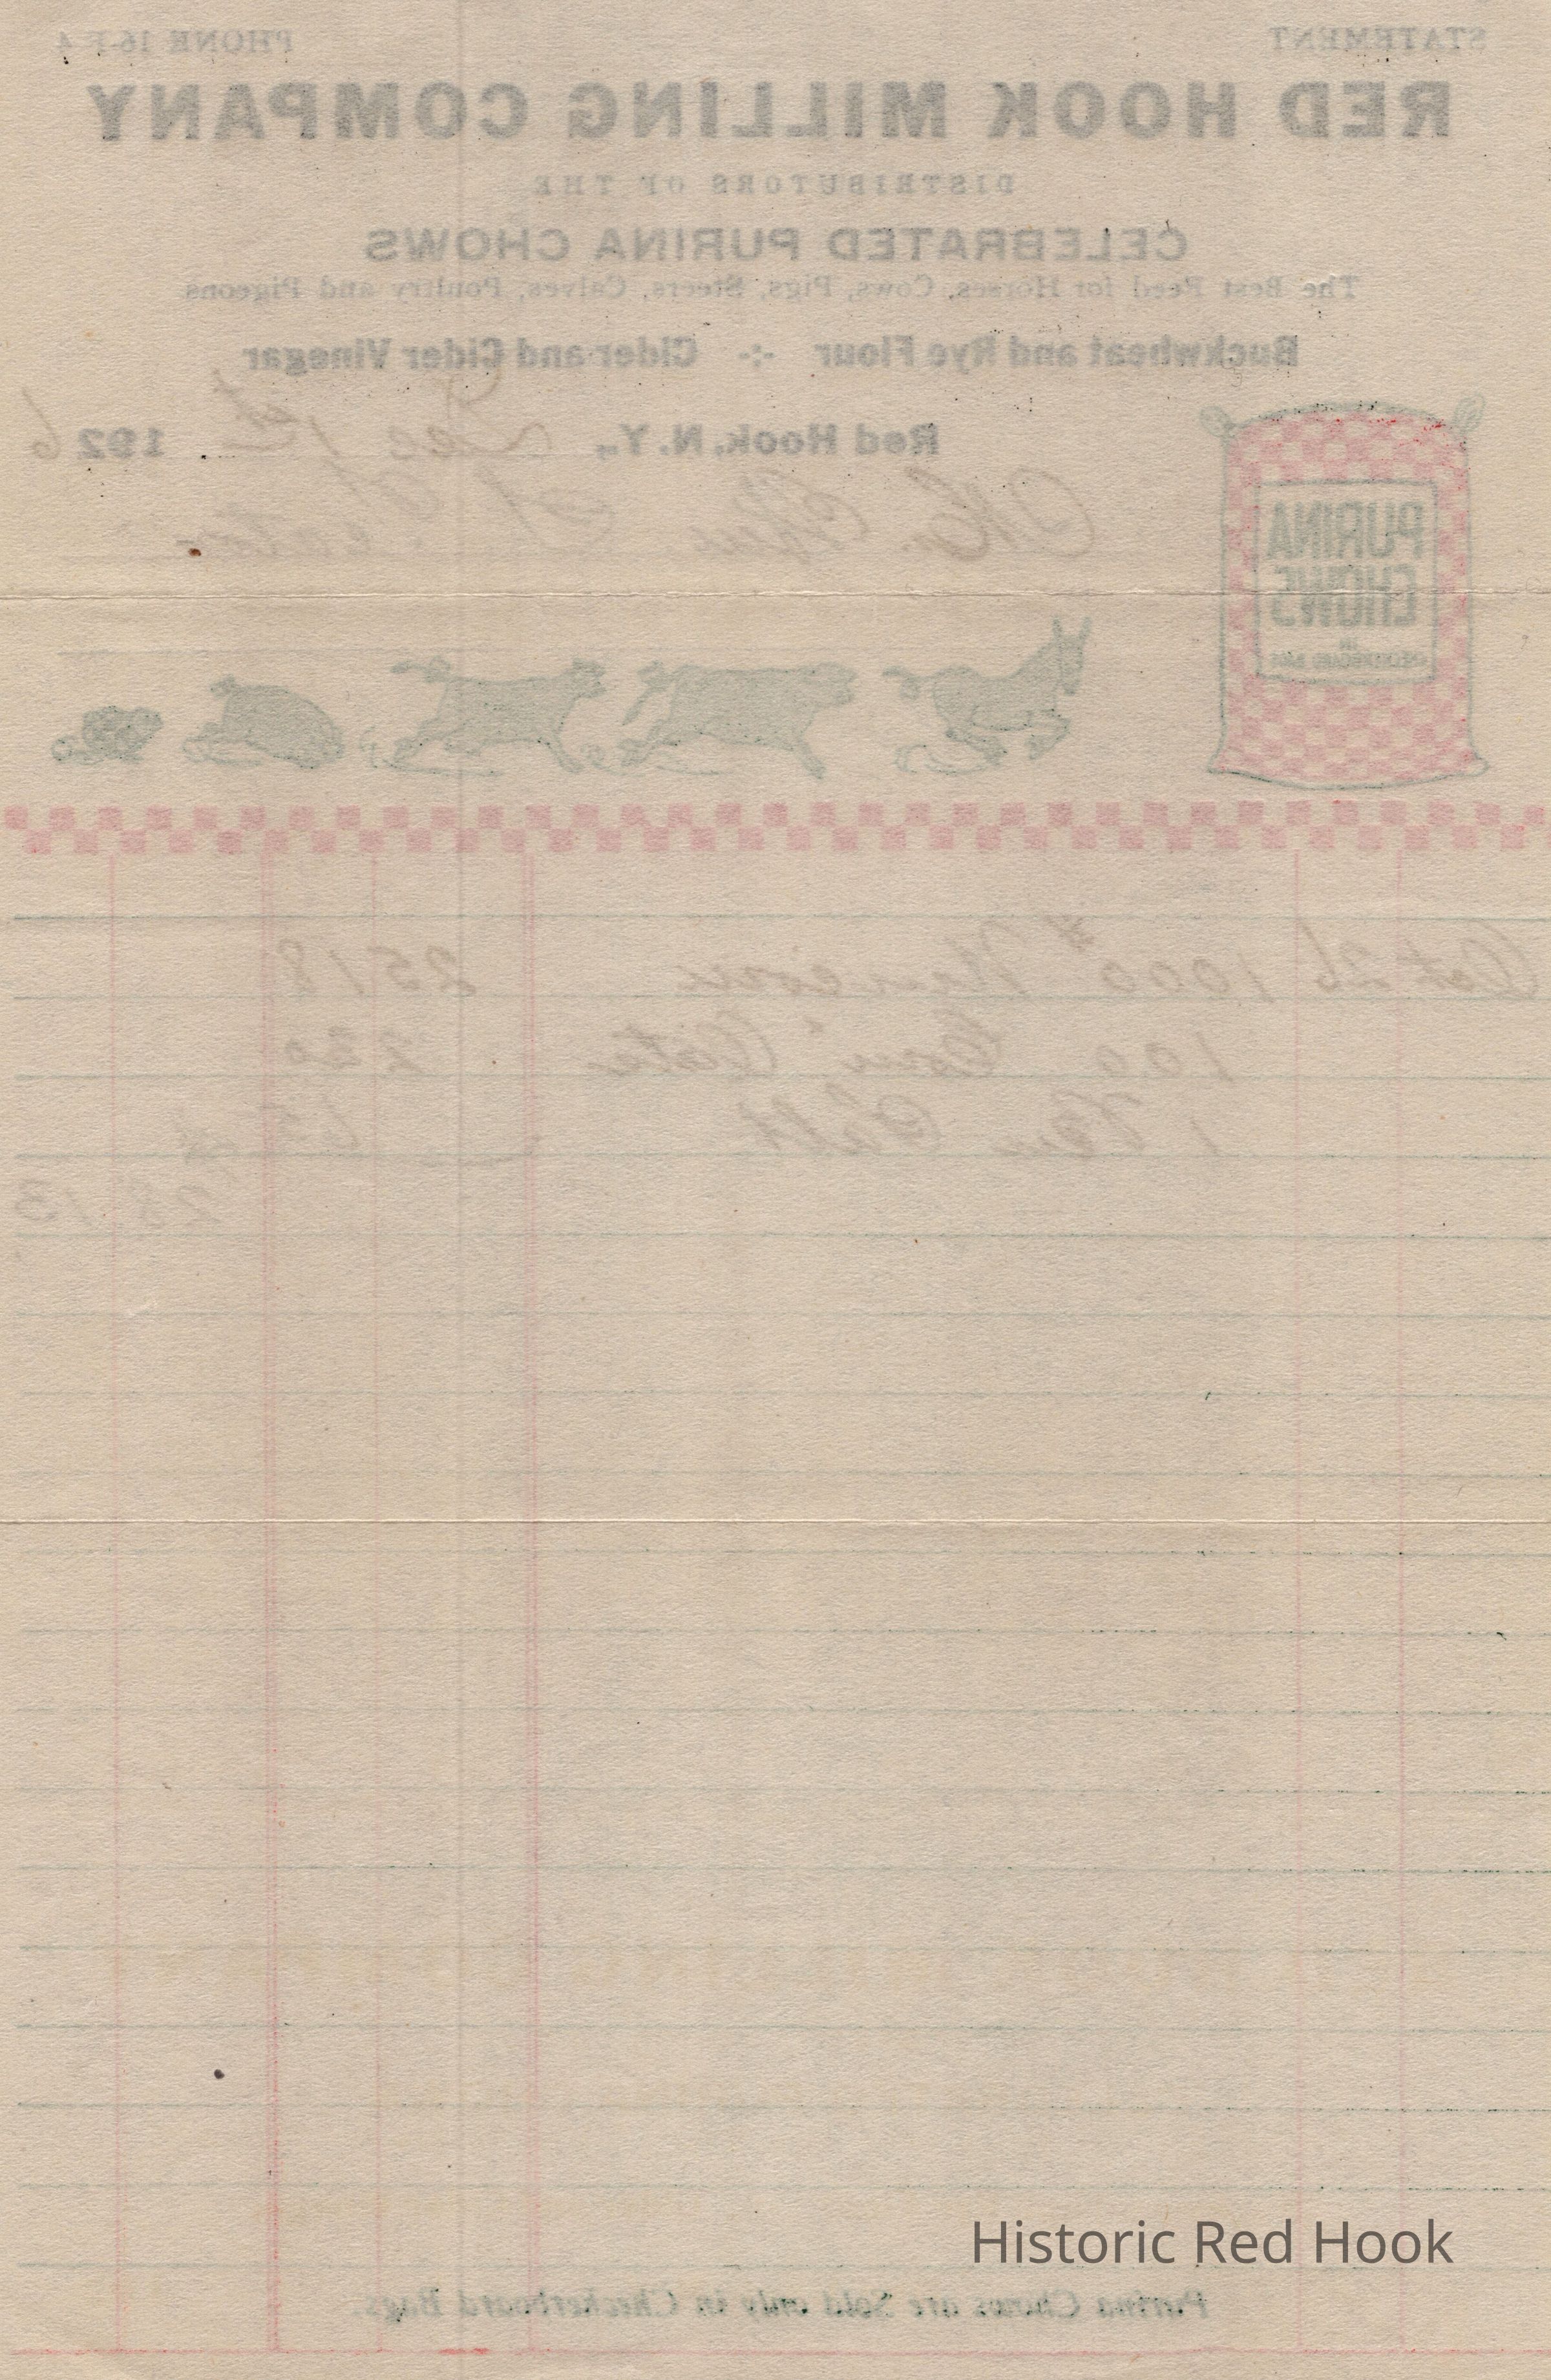 STATEMENT PHONE 16-F 4
RED HOOK MILLING COMPANY
DISTRIBUTORS OF THE
CELEBRATED PURINA CHOWS
The Best Feed for Horses, Cows, Pigs, Steers, Calves, Poultry and Pigeons
Buckwheat and Rye Flour -:- Cider and Cider Vinegar
Red Hook, N. Y., Dec 1st 1926
PURINA
CHOWS
IN
CHECKERBOARD BAGS
Oct 26 1000 # 25 18
100 Corn Oats 2 30
1 65
28 13
Historic Red Hook
Purina Chows are Sold only in Checkerboard Bags.